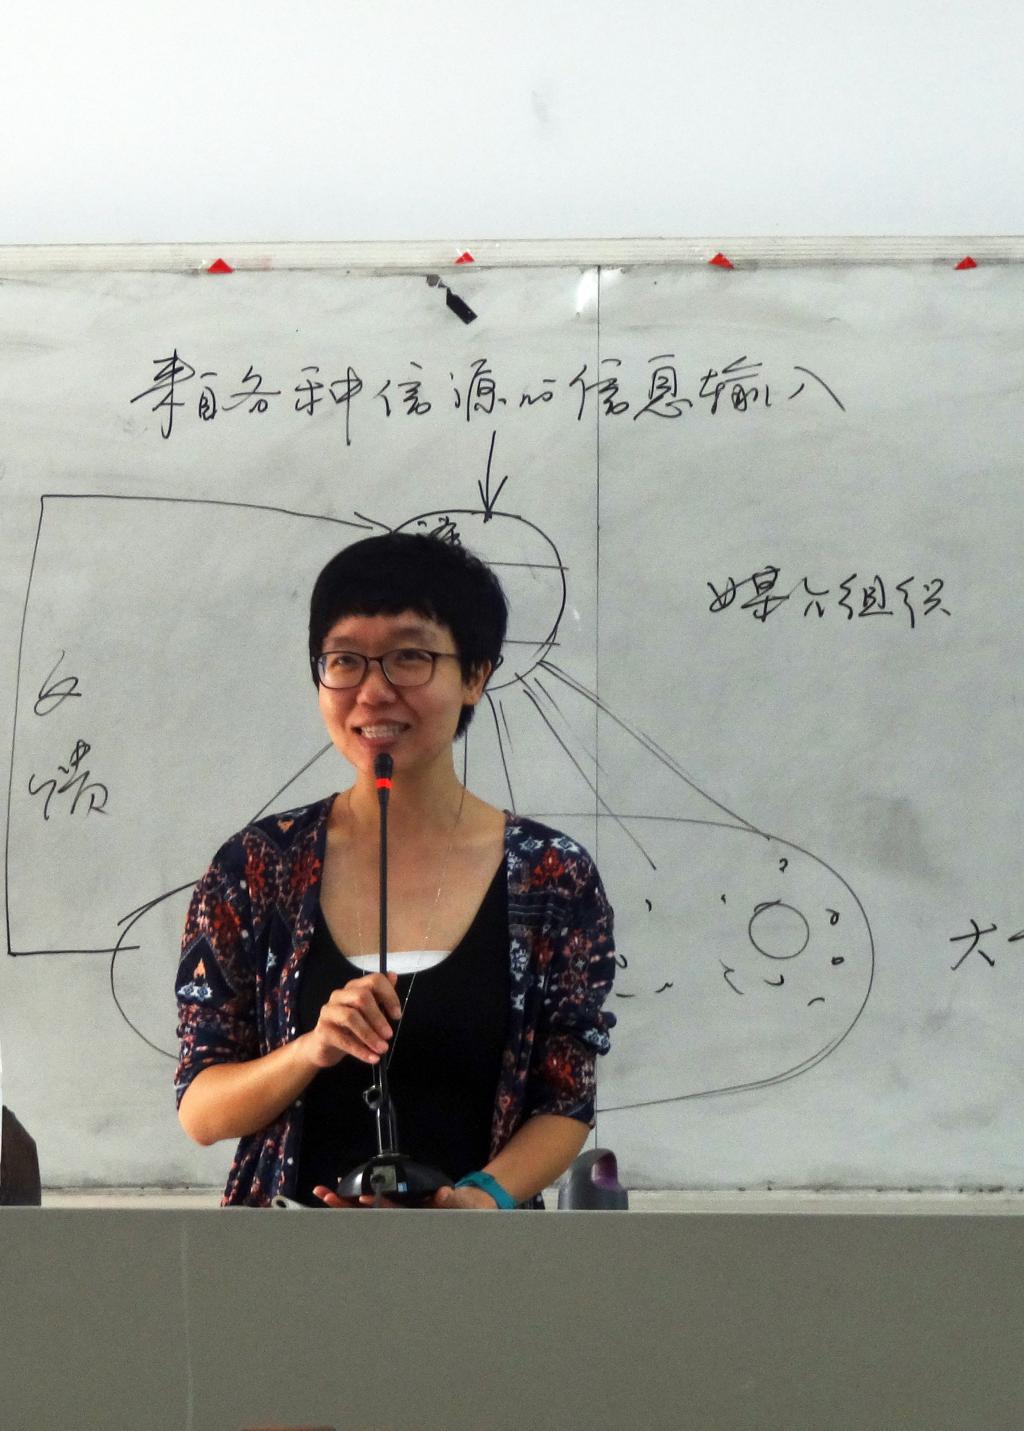 来自各种信源的信息输入
媒介组织
反馈
大